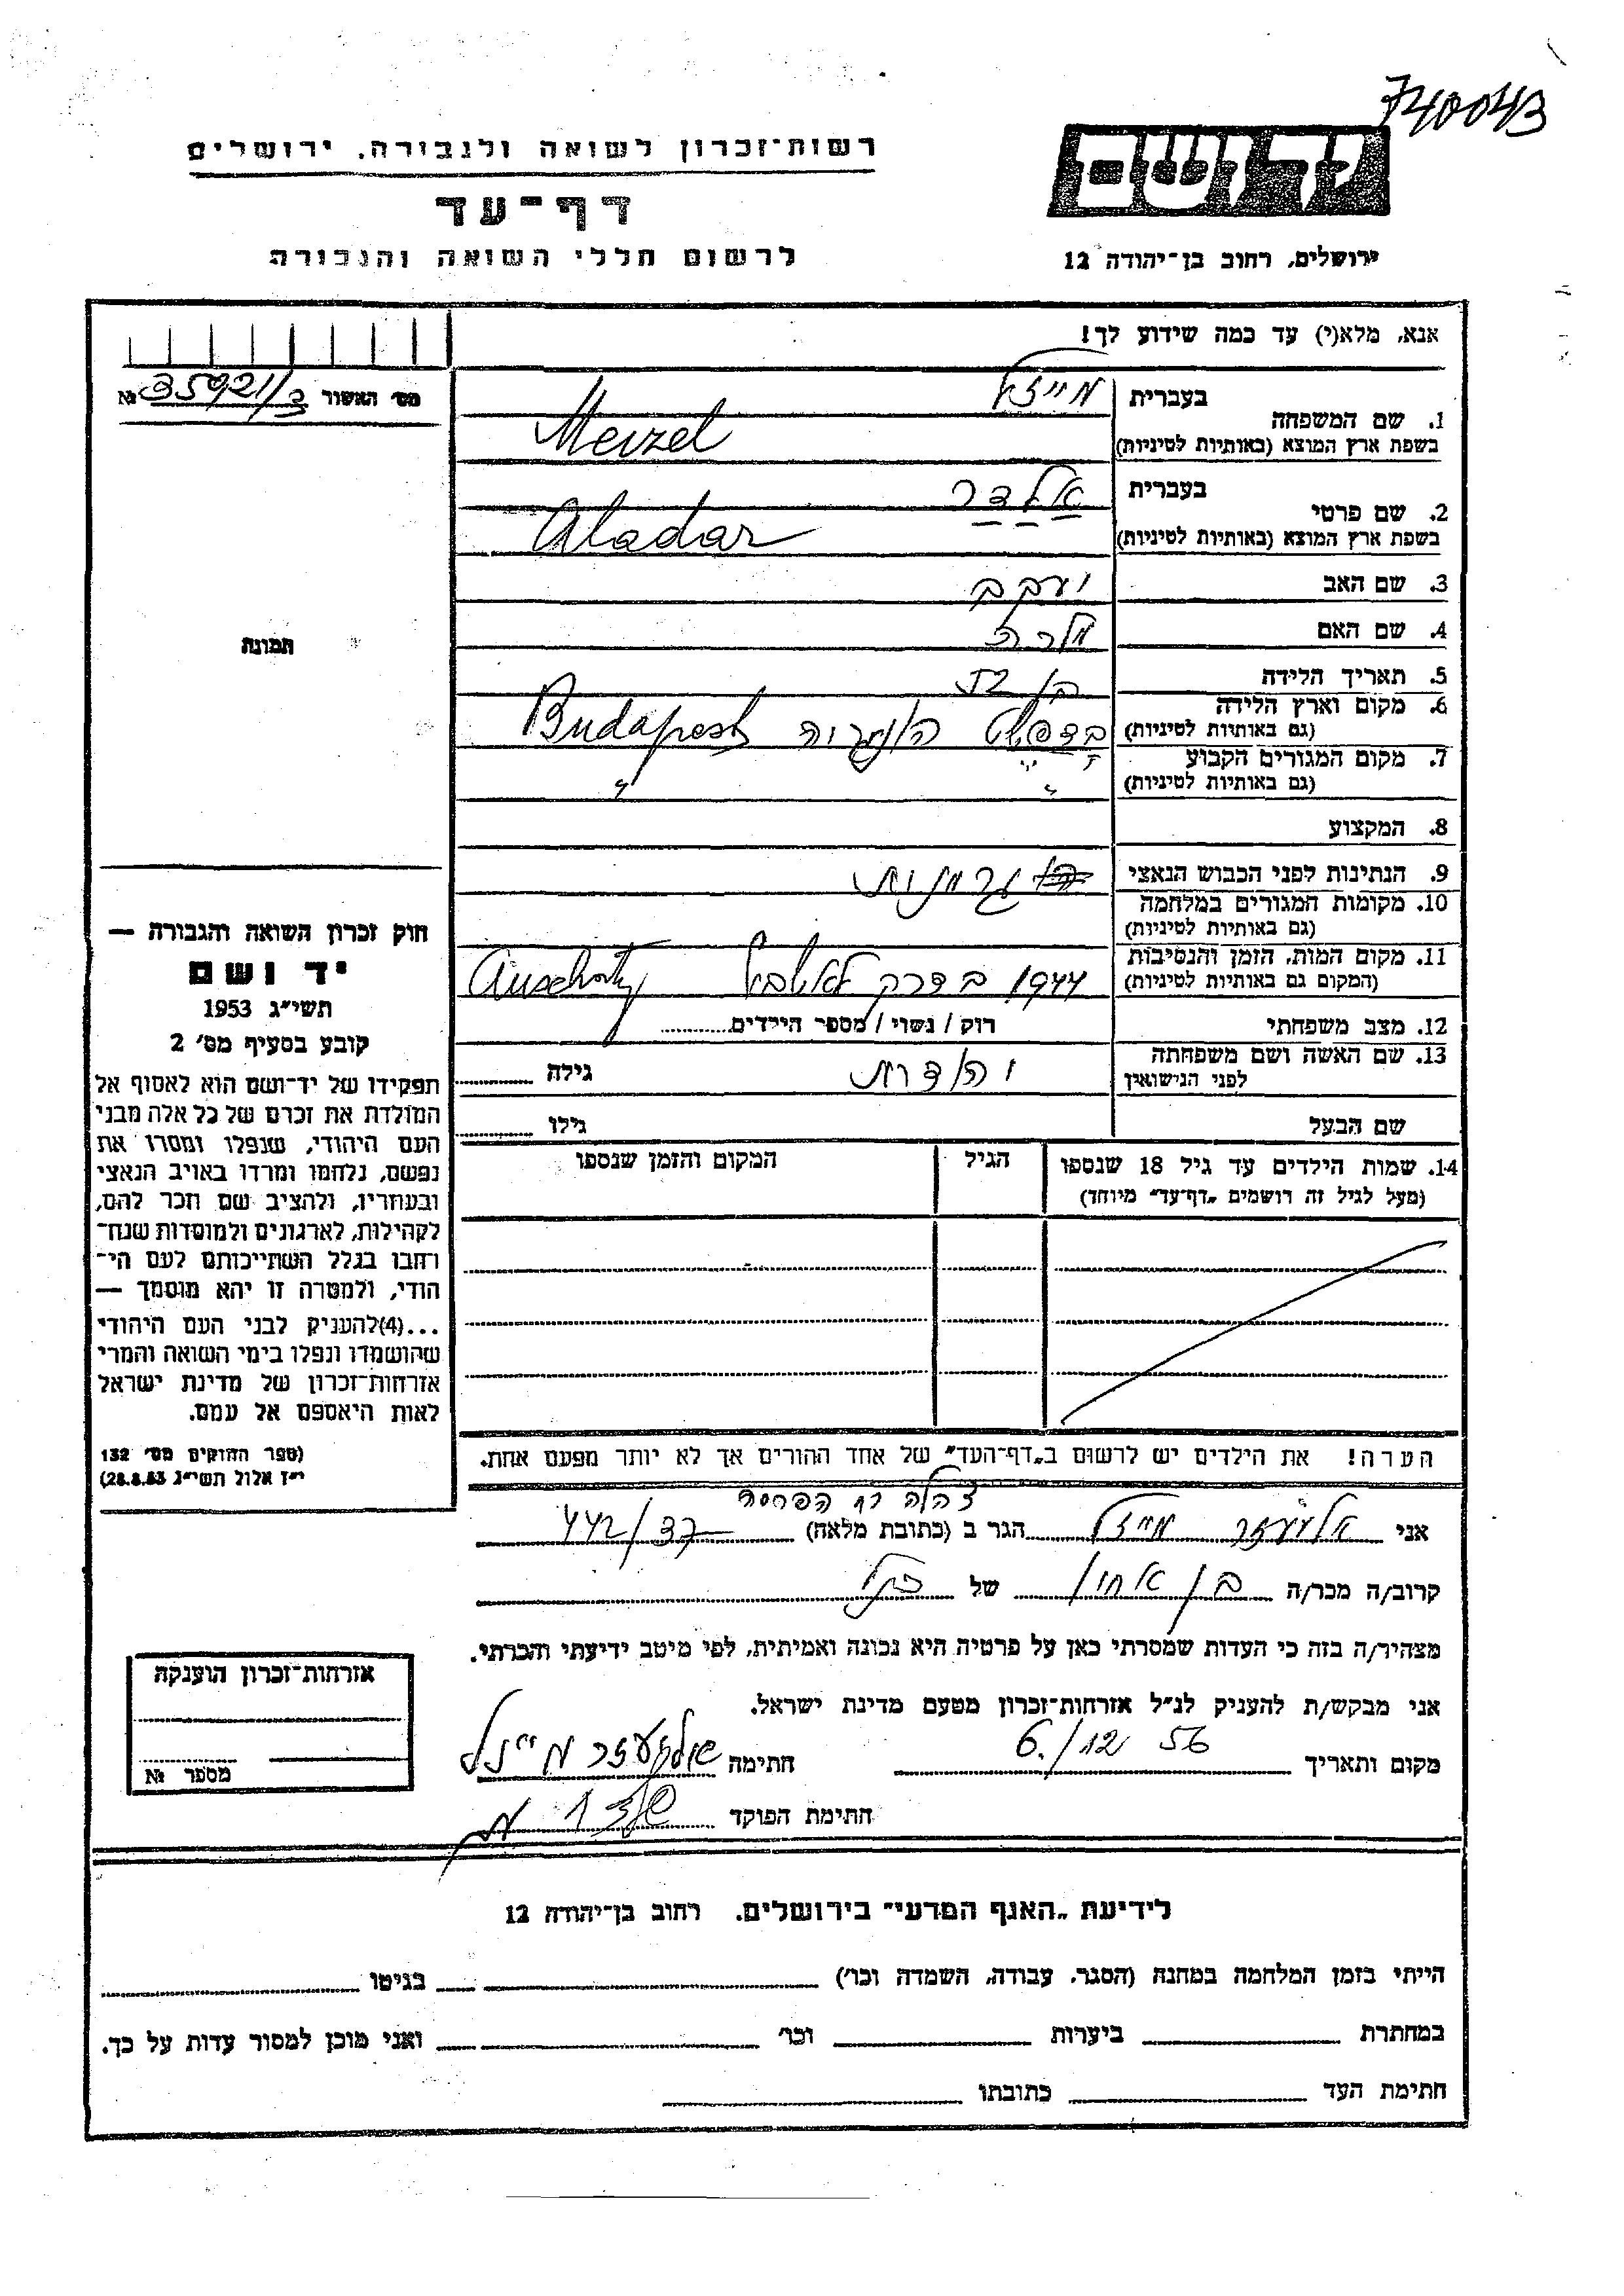 740043
רשות־זכרון לשואה ולגבורה, ירושלים
דף־עד
לרשום חללי השואה והגבורה
יד ושם
ירושלים, רחוב בן־יהודה 12
אנא, מלא(י) עד כמה שידוע לך!
מס' האשור 35921/3 №
תמונה
1. שם המשפחה
בעברית מייזל
בשפת ארץ המוצא (באותיות לטיניות) Meizel
2. שם פרטי
בעברית אלדר
בשפת ארץ המוצא (באותיות לטיניות) Aladar
3. שם האב יעקב
4. שם האם
5. תאריך הלידה בן 52
6. מקום וארץ הלידה
(גם באותיות לטיניות) בדפשט הונגריה Budapest
7. מקום המגורים הקבוע
(גם באותיות לטיניות) " "
8. המקצוע
9. הנתינות לפני הכבוש הנאצי
10. מקומות המגורים במלחמה
(גם באותיות לטיניות)
11. מקום המות, הזמן והנסיבות
(המקום גם באותיות לטיניות) 1944 בדרך
12. מצב משפחתי רוק / נשוי / מספר הילדים
13. שם האשה ושם משפחתה
לפני הנישואין יהודית גילה
שם הבעל גילו
14. שמות הילדים עד גיל 18 שנספו הגיל המקום והזמן שנספו
(מעל לגיל זה רושמים „דף־עד" מיוחד)
חוק זכרון השואה והגבורה —
יד ושם
תשי"ג 1953
קובע בסעיף מס' 2
תפקידו של יד־ושם הוא לאסוף אל
המולדת את זכרם של כל אלה מבני
העם היהודי, שנפלו ומסרו את
נפשם, נלחמו ומרדו באויב הנאצי
ובעוזריו, ולהציב שם וזכר להם,
לקהילות, לארגונים ולמוסדות שנח־
רחבו בגלל השתייכותם לעם הי־
הודי, ולמטרה זו יהא מוסמך —
...(4)להעניק לבני העם היהודי
שהושמדו ונפלו בימי השואה והמרי
אזרחות־זכרון של מדינת ישראל
לאות היאספם אל עמם.
(ספר החוקים מס' 132
י"ז אלול תשי"ג 28.8.53)
הערה! את הילדים יש לרשום ב„דף־העד" של אחד ההורים אך לא יותר מפעם אחת.
אני אלעזר מייזל הגר ב (כתובת מלאה) 442/37
קרוב/ה מכר/ה בן אחיו של
מצהיר/ה בזה כי העדות שמסרתי כאן על פרטיה היא נכונה ואמיתית, לפי מיטב ידיעתי והכרתי.
אני מבקש/ת להעניק לנ"ל אזרחות־זכרון מטעם מדינת ישראל.
מקום ותאריך 6./12 56 חתימה אליעזר מייזל
חתימת הפוקד
אזרחות־זכרון הוענקה
מספר №
לידיעת „האגף המדעי" בירושלים. רחוב בן־יהודה 12
הייתי בזמן המלחמה במחנה (הסגר, עבודה, השמדה וכו') בגיטו
במחתרת ביערות וכו' ואני מוכן למסור עדות על כך.
חתימת העד כתובתו